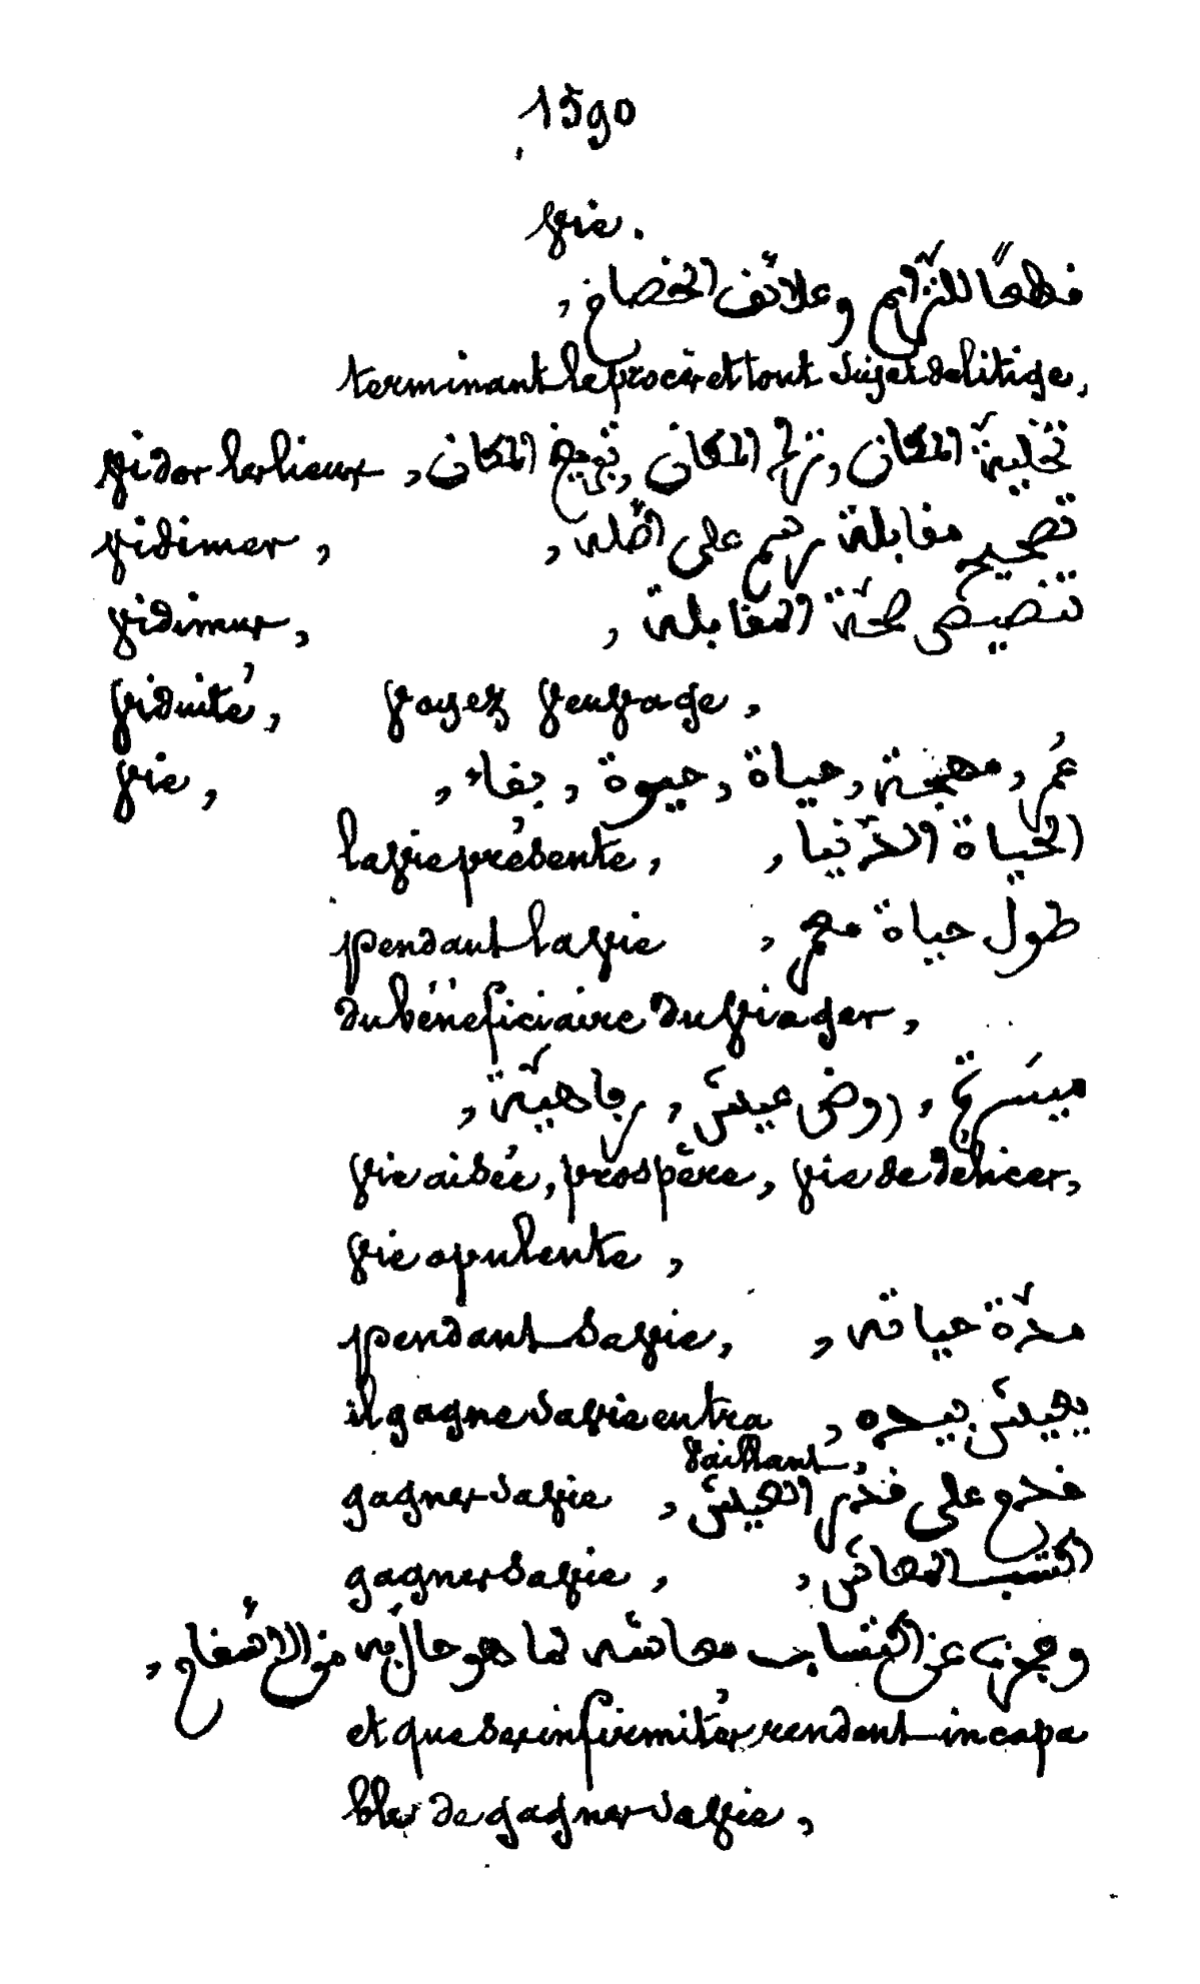 1590
vie.
قطعًا للنزاع وعلائق الخصام,
terminant le procès et tout sujet de litige,
vider les lieux, تخلية المكان, ترك المكان, تفريغ المكان,
vidimer, تصحيح مقابلة رسم على اصله,
vidimus, تنصيص صحّة المقابلة,
viduité, voyez veuvage,
vie, عُمر, مهجة, حياة, حيوة, بقاء,
la vie présente, الحياة الدّنيا,
pendant la vie طول حياة معمر,
du bénéficiaire du viager,
ميسرة, روض عيش, رفاهيّة,
vie aisée, prospère, vie de délices,
vie opulente,
pendant sa vie, مدّة حياته,
il gagne sa vie en tra يعيش بيده,
vaillant,
gagner sa vie قدر على العيش,
gagner sa vie, اكتسب المعاش,
وعجزت عن اكتساب معاشه لما هو حالّ به من
et que ses infirmités rendent incapa
bles de gagner sa vie,